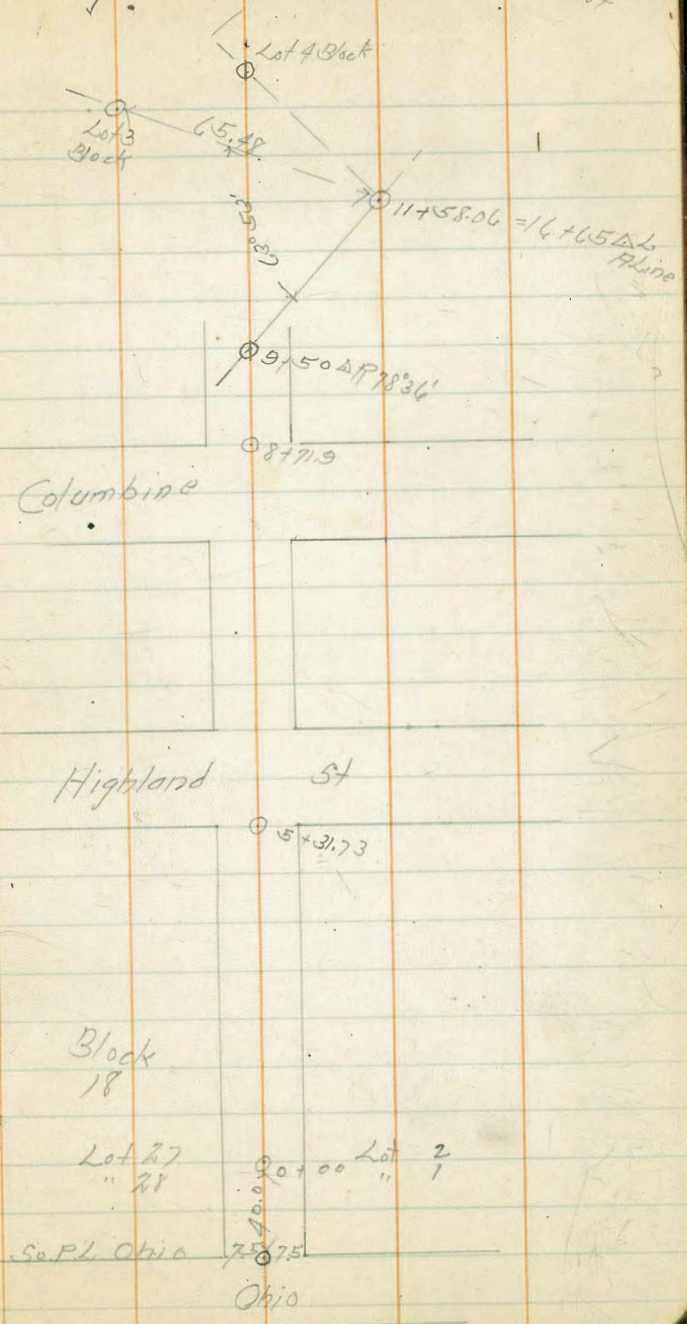 Lot 4 Block
Lot 3
Block
65.48
63°52'
11+58.06 = 16+65 △ L
A Line
9+50 △ R 78°36'
8+71.9
Columbine
Highland St
5+31.73
Block
18
Lot 27 0+00 Lot 2
" 28 " 1
40.0
So. P.L. Ohio 7.5 7.5
Ohio